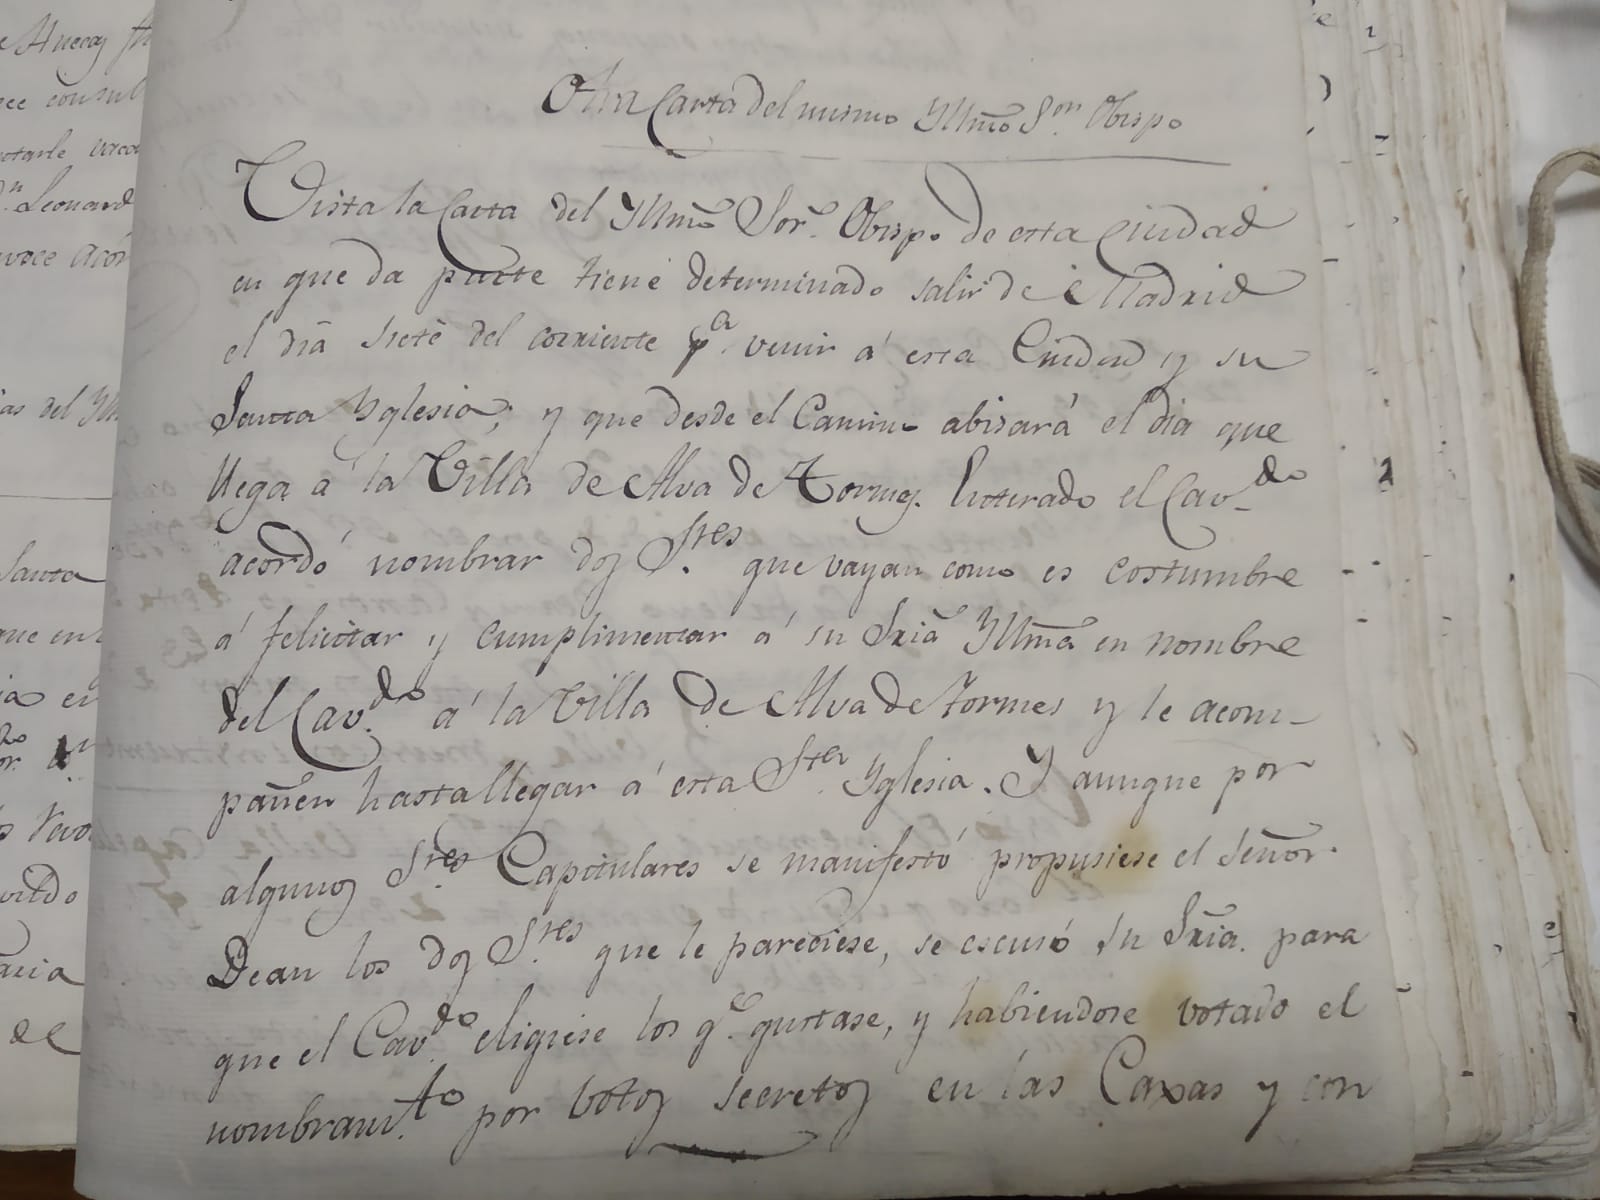 Otra Carta del mismo Yllmo Sor. Obispo
Vista la Carta del Yllmo Sor. Obispo de esta Ciudad
en que da parte tiene determinado salir de Madrid
el dia siete del corriente pa. venir á esta Ciudad y su
Santa Yglesia; y que desde el Camino abisará el dia que
llega á la Villa de Alva de Tormes. Enterado el Cavdo
acordó nombrar dos Sres. que vayan como es costumbre
á felicitar y cumplimentar á su Sria Yllma en nombre
del Cavdo. á la Villa de Alva de Tormes y le acom-
pañen hasta llegar á esta Sta. Yglesia. Y aunque por
algunos Sres. Capitulares se manifestó propusiese el Señor
Dean los dos Sres. que le pareciese, se escusó su Sria. para
que el Cavdo. eligiese los qe. gustase, y habiendose votado el
nombramto. por votos secretos en las Caxas y con
e Huecas
ece consul
votarle
n. Leonard
as del Yll
Santa
que en
ia en
de